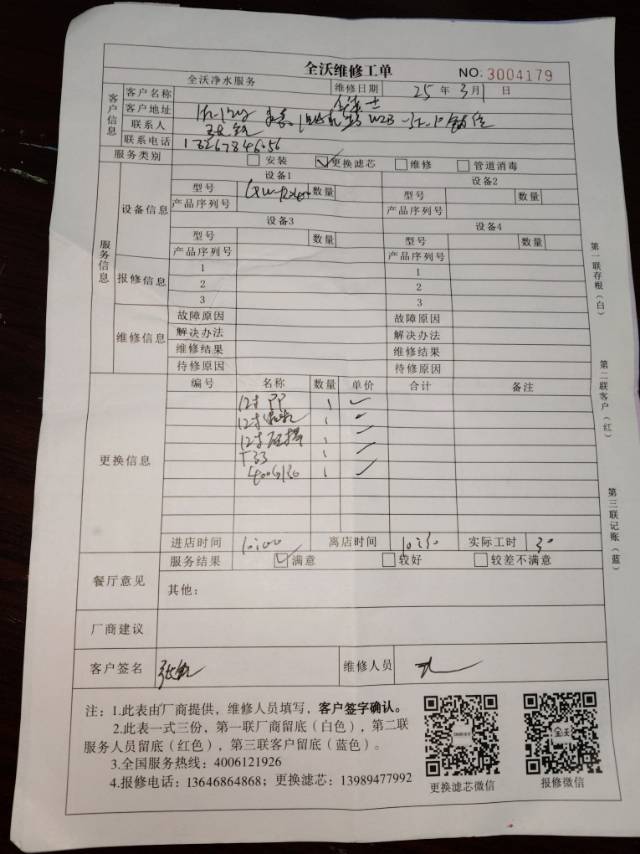 全沃维修工单
NO. 3004179
全沃净水服务 维修日期 25 年 3 月 日
客户信息
客户名称
客户地址
联系人
联系电话
服务类别 安装 更换滤芯 维修 管道消毒
服务信息
设备信息
设备1 设备2
型号 数量 型号 数量
产品序列号 产品序列号
设备3 设备4
型号 数量 型号 数量
产品序列号 产品序列号
报修信息
1 1
2 2
3 3
维修信息
故障原因 故障原因
解决办法 解决办法
维修结果 维修结果
待修原因 待修原因
更换信息
编号 名称 数量 单价 合计 备注
12寸PP 1
12寸 1
12寸 1
T33 1
400G 1
进店时间 10:00 离店时间 10:30 实际工时 30
餐厅意见
服务结果 满意 较好 较差不满意
其他:
厂商建议
客户签名 维修人员
注:1.此表由厂商提供,维修人员填写,客户签字确认。
2.此表一式三份,第一联厂商留底(白色),第二联
服务人员留底(红色),第三联客户留底(蓝色)。
3.全国服务热线:4006121926
4.报修电话:13646864868;更换滤芯:13989477992
更换滤芯微信 报修微信
第一联存根(白)
第二联客户(红)
第三联记账(蓝)